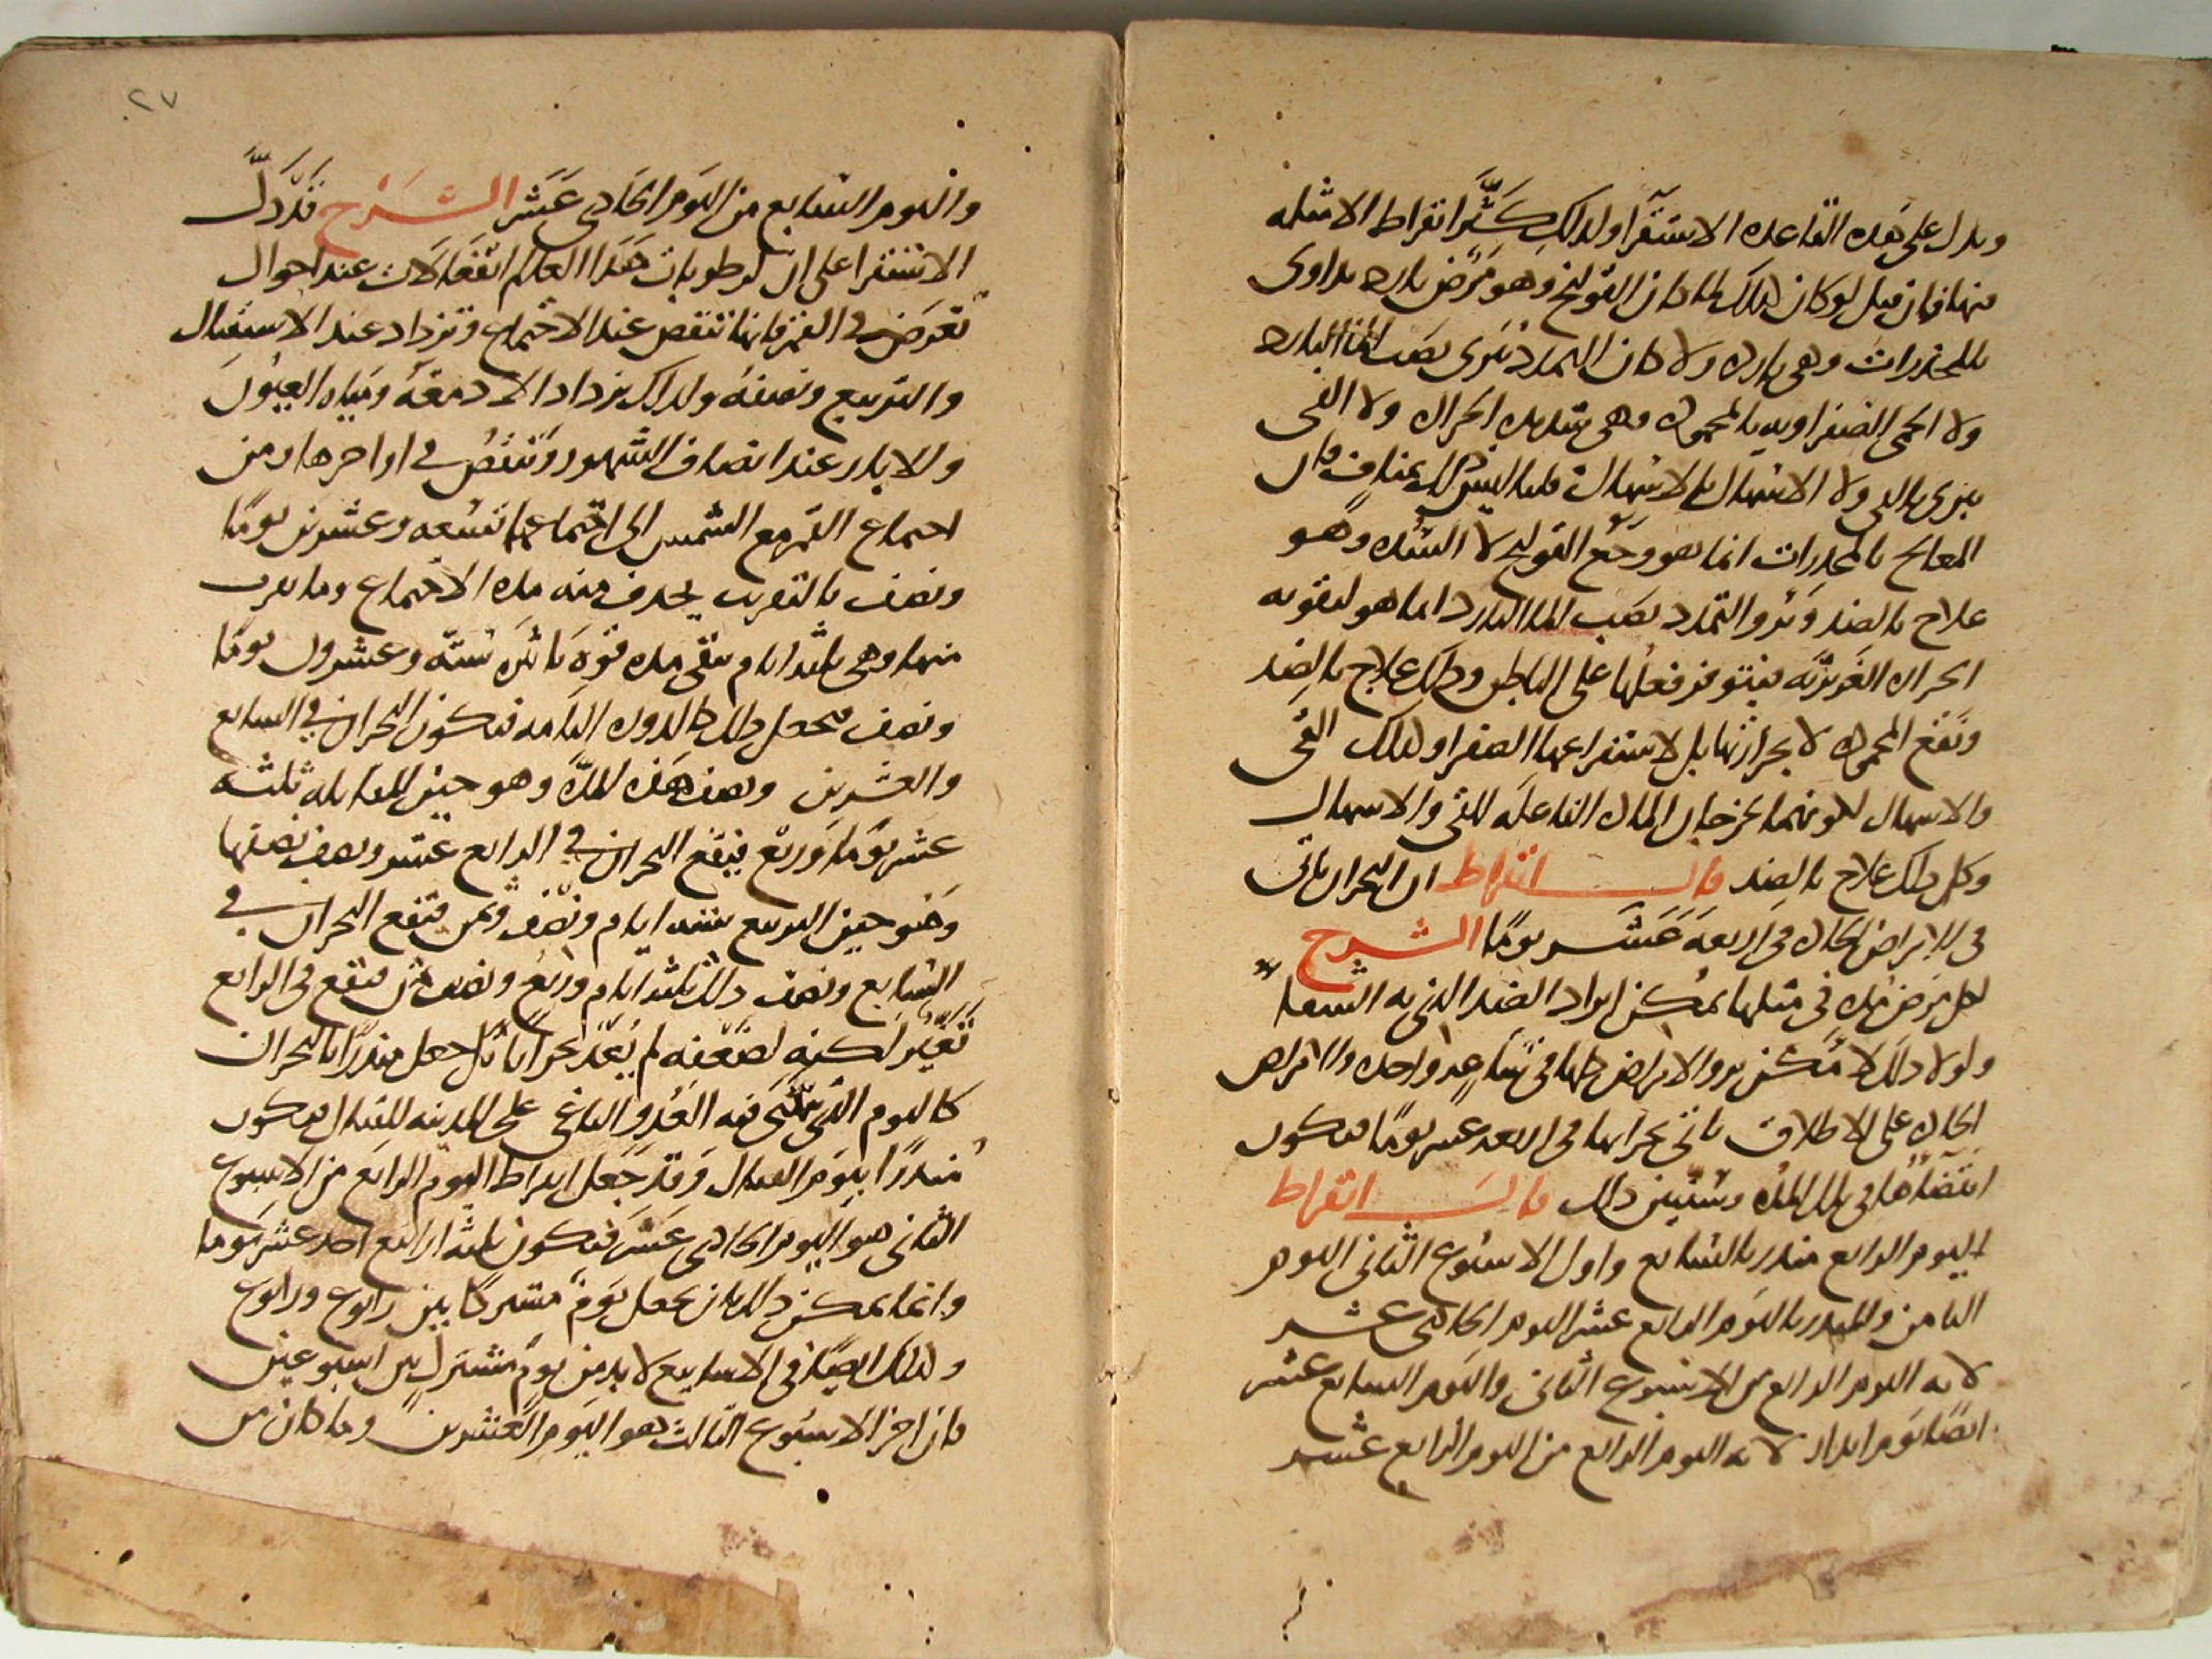 ويدل على هذه القاعدة الاستقرا ولذلك كثر ابقراط الامثلة
منها فان قيل لو كان ذلك لما كان القولنج وهو مرض بارد يداوى
بالمخدرات وهي باردة ولا كان التمدد يبرى بصب الماء البارد
ولا الحمى الصفراويه بالمحموده وهي شديده الحراره ولا القى
يبرى بالقى ولا الاسهال بالاسهال قلنا ليس ذلك بمناف فان
المعالج بالمخدرات انما هو وجع القولنج لا السدة وهو
علاج بالضد وبرو التمدد بصب الما البارد انما هو لتقويه
الحراره الغريزيه فيتوفر فعلها على الباطن وذلك علاج بالضد
ونفع المحموده لا بحرارتها بل لاستفراغها الصفرا وكذلك القى
والاسهال لكونهما يخرجان الماده الفاعله للقى والاسهال
وكل ذلك علاج بالضد قال ابقراط ان البحران ياتي
في الامراض الحاده في اربعة عشر يوما الشرح
لكل مرض مده في مثلها يمكن ايراد الضد الذي به الشفا
ولولا ذلك لامكن برو الامراض كلها في ساعه واحده والامراض
الحاده على الاطلاق ياتي بحرانها في اربعه عشر يوما فيكون
انقضاها في تلك المده وسنبين ذلك قال ابقراط
اليوم الرابع منذر بالسابع واول الاسبوع الثاني اليوم
الثامن والمنذر باليوم الرابع عشر اليوم الحادي عشر
لانه اليوم الرابع من الاسبوع الثاني واليوم السابع عشر
ايضا يوم انذار لانه اليوم الرابع من اليوم الرابع عشر
٢٧
واليوم السابع من اليوم الحادي عشر الشرح قد دل
الاستقرا على ان لرطوبات هذا العالم انفعالات عند احوال
تعرض في القمر فانها تنقص عند الاجتماع وتزداد عند الاستقبال
والتربيع ونصفه ولذلك يزداد الادمغة ومياه العيون
والابار عند انصاف الشهور وتنقص في اواخرها ومن
اجتماع القمر مع الشمس الى اجتماعهما تسعه وعشرين يوما
ونصف بالتقريب يحذف منه مدة الاجتماع وما يقرب
منها وهي ثلثه ايام يبقى مده قوة تاثره سته وعشرون يوما
ونصف فجعل ذلك كالدور التامه فيكون البحران في السابع
والعشرين ونصف هذه المدة وهو حين المقابله ثلثه
عشر يوما وربع فيقع البحران في الرابع عشر ونصف نصفها
وهو حين التربيع سته ايام ونصف وثمن فيقع البحران في
السابع ونصف ذلك ثلثه ايام وربع ونصف ثمن فيقع في الرابع
تغير لكنه لضعفه لم يعد بحرانا بل جعل منذرا بالبحران
كاليوم الذي فيه العدو الباغي على المدينه للقتال فيكون
منذرا بيوم القتال وقد جعل ابقراط اليوم الرابع من الاسبوع
الثاني هو اليوم الحادي عشر فيكون ثلثه ارابيع احد عشر يوما
وانما يمكن ذلك بان يجعل يوم مشتركا بين رابوع ورابوع
وكذلك ايضا في الاسابيع لا بد من يوم مشترك بين اسبوعين
فان اخر الاسبوع الثالث هو اليوم العشرين وما كان من